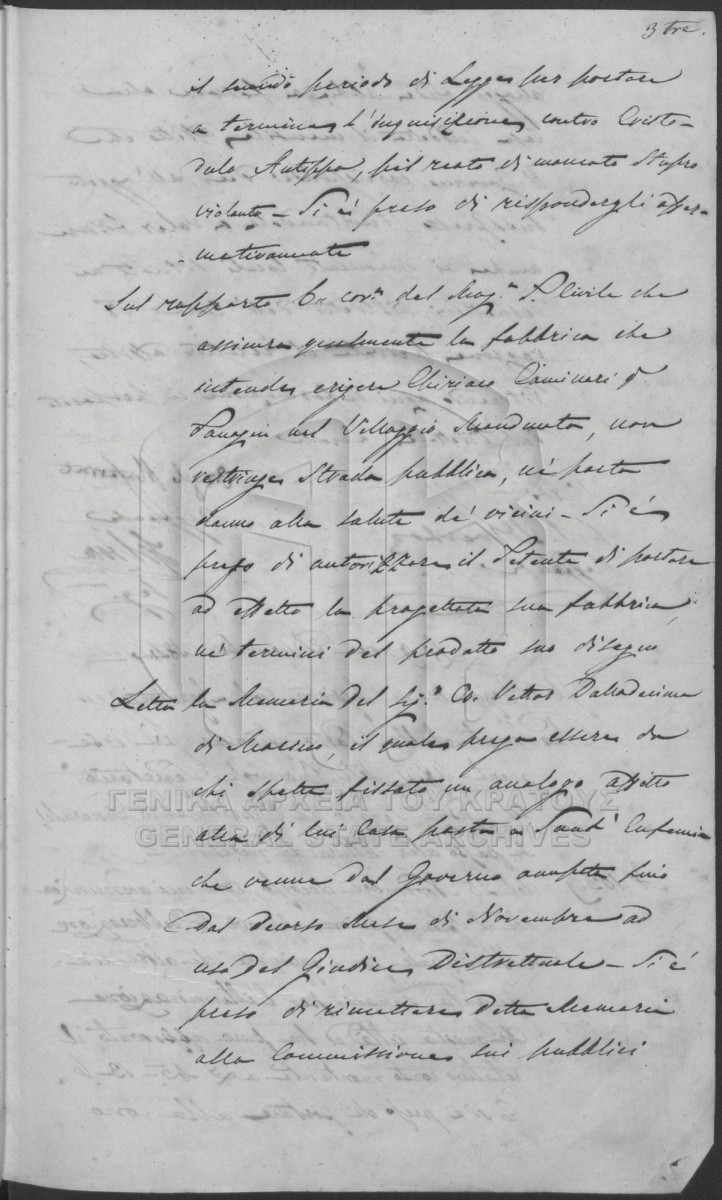 3 tre.
il secondo periodo di Legge per portare
a termine l'inquisizione contro Cristo-
dulo Antippa, pel reato di mancato Stupro
violento – Si è preso di rispondergli affer-
mativamente
Sul rapporto 6 cor.e del Mag.to P. Civile che
assicura qualmente la fabbrica che
intende erigere Chiriaco Caminari q
Panagin nel Villaggio Manducata, non
restringe Strada pubblica, nè porta
danno alla salute de' vicini – Si è
preso di autorizzare il Petente di portare
ad effetto la progettata sua fabbrica,
nè termini del prodotto suo disegno
Letta la Memoria del Sig.r Co. Vettor Dalladecima
di Marino, il quale prega essere da
chi spetta fissato un analogo affitto
alla di lui Casa posta a Sant' Eufemia
che venne dal Governo occupata fino
dal decorso Mese di Novembre ad
uso del Giudice Distrettuale – Si è
preso di rimettere detta Memoria
alla Commissione sui pubblici
ΓΕΝΙΚΑ ΑΡΧΕΙΑ ΤΟΥ ΚΡΑΤΟΥΣ
GENERAL STATE ARCHIVES